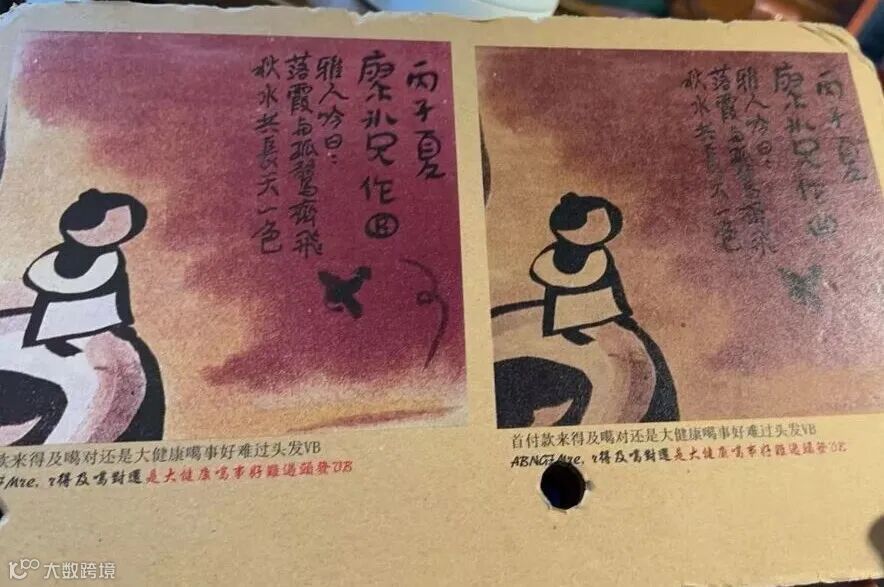 丙子夏
廖冰兄作
雅人吟曰:
落霞与孤鶩齊飛
秋水共長天一色
款来得及噶对还是大健康噶事好难过头发VB
Mre, r得及噶對還是大健康噶事好難過頭發VB
丙子夏
廖冰兄作
雅人吟曰:
落霞与孤鶩齊飛
秋水共長天一色
首付款来得及噶对还是大健康噶事好难过头发VB
ABNGFMre, r得及噶對還是大健康噶事好難過頭發VB
大数跨境